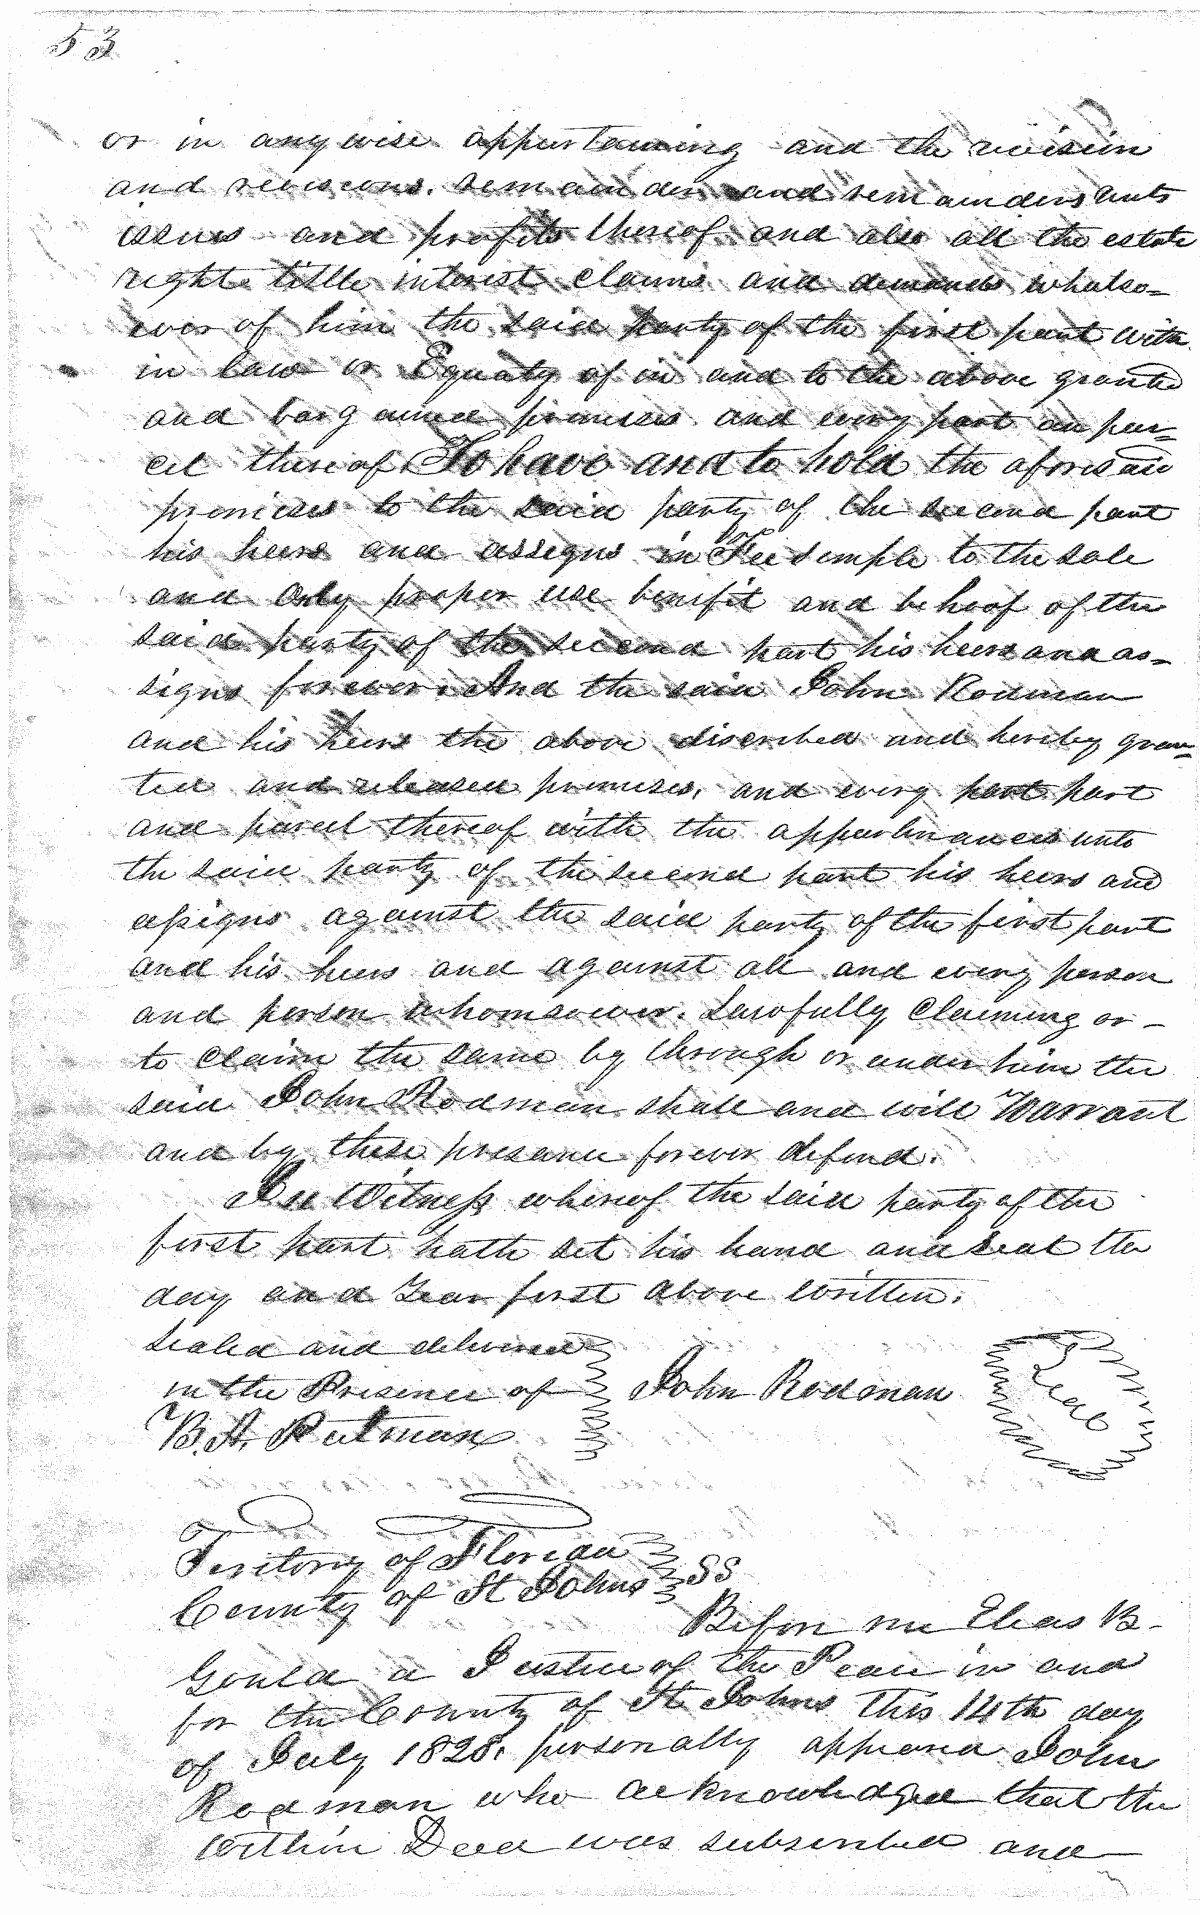 53
or in anywise appurtaining and the revision
and revisions. remainder and remainders rents
issues and profits thereof and also all the estate
right title interest claims and demands whatso=
ever of him the said party of the first part with
in law or Equaty of in and to the above granted
and bargained premises and every part an par=
cel thereof To have and to hold the aforesaid
premises to the said party of the second part
his heirs and assigns in Fee simple to the sole
and only proper use benifit and behoof of the
said party of the second part his heirs and as=
signs forever. And the said John Rodman
and his heirs the above discribed and hereby gran=
ted and released premises, and every part part
and parcel thereof with the appurtinances unto
the said party of the second part his heirs and
assigns against the said party of the first part
and his heirs and against all and every person
and person whomsoever. Lawfully Claiming or -
to Claim the same by through or under him the
said John Rodman shall and will Warrant
and by these presance forever defend.
In Witness whereof the said party of the
first part hath set his hand and seal the
day and Year first above written.
Sealed and delivered
in the Presence of John Rodman Seal
B. A. Putman
Territory of Florida
County of St Johns SS
Before me Elias B-
Gould a Justice of the Peace in and
for the County of St Johns this 14th day
of July 1828. personally appeared John
Rodman who acknowledged that the
within Deed was subscribed and